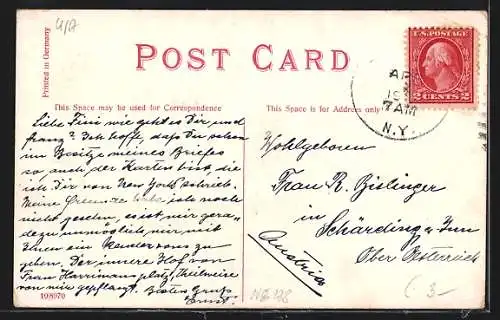 U/A
Printed in Germany
POST CARD
U.S. POSTAGE
2 CENTS 2
7 AM
N.Y.
This Space may be used for Correspondence
This Space is for Address only
Liebe Fini wie geht es Dir und
Franz? Ich hoffe, daß Du schon
im Besitze meines Briefes
so, auch der Karten bist, die
ich Dir von New York schrieb.
Meine habe ich noch
nicht gesehen, es ist mir gera-
dezu unmöglich, mir mit
Ihnen ein Rendezvous zu
geben. Der innere Hof von
Frau Harrimans platz, teilweise
von mir gepflanzt. Besten Gruß
Ernst.
Wohlgeboren
Frau R. Bislinger
in
Schärding a. Inn
Ober Österreich
Austria
108970
3-